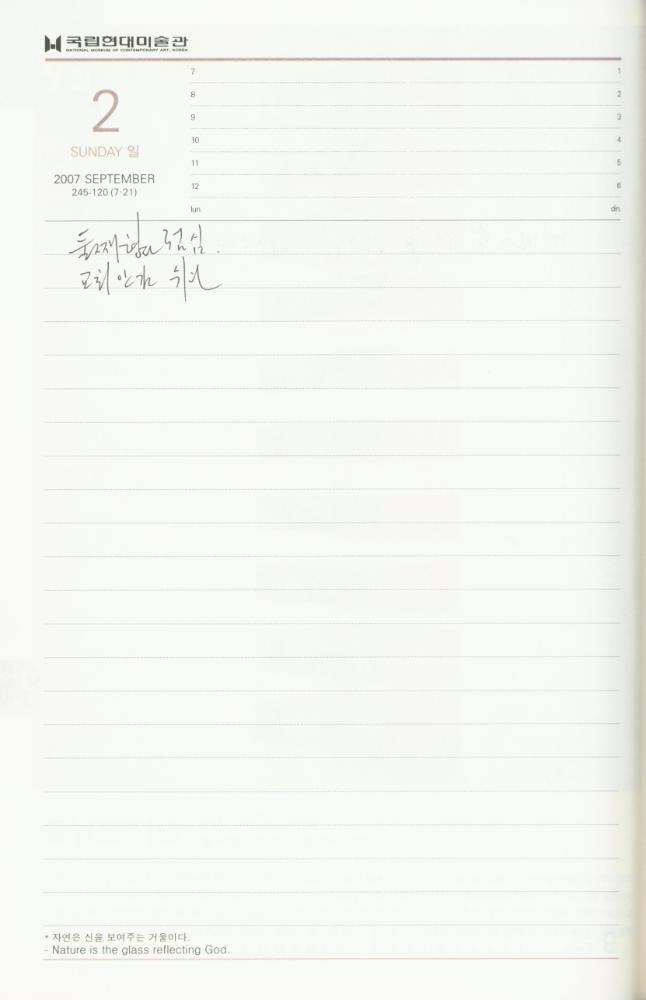 국립현대미술관
NATIONAL MUSEUM OF CONTEMPORARY ART, KOREA
2
SUNDAY 일
2007 SEPTEMBER
245-120 (7·21)
7
8
9
10
11
12
lun
1
2
3
4
5
6
din
점심.
교회 안 감
* 자연은 신을 보여주는 거울이다.
- Nature is the glass reflecting God.